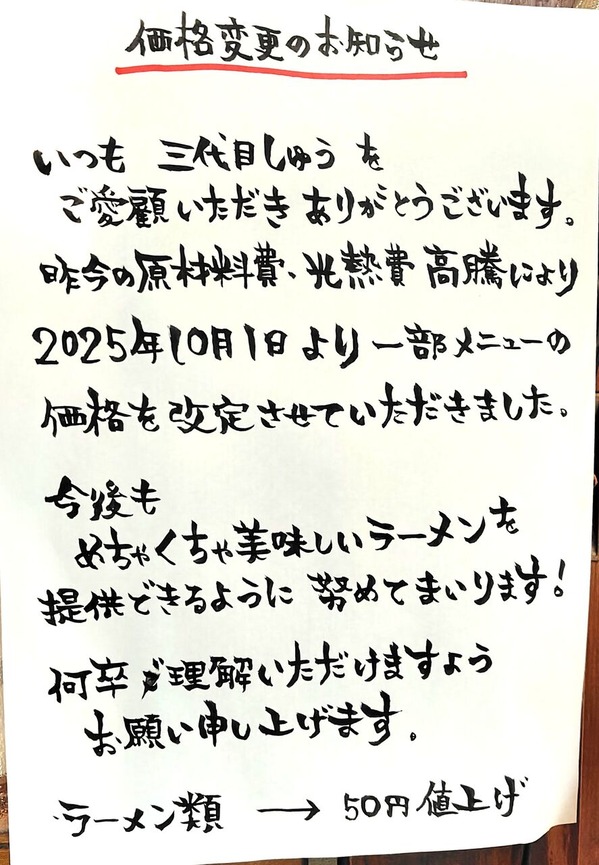 価格変更のお知らせ
いつも 三代目しゅう を
ご愛顧いただき ありがとうございます。
昨今の原材料費、光熱費 高騰により
2025年10月1日 より 一部 メニューの
価格を改定させていただきました。
今後も
めちゃくちゃ美味しいラーメンを
提供できるように 努めてまいります!
何卒ご理解いただけますよう
お願い申し上げます。
ラーメン類 → 50円値上げ